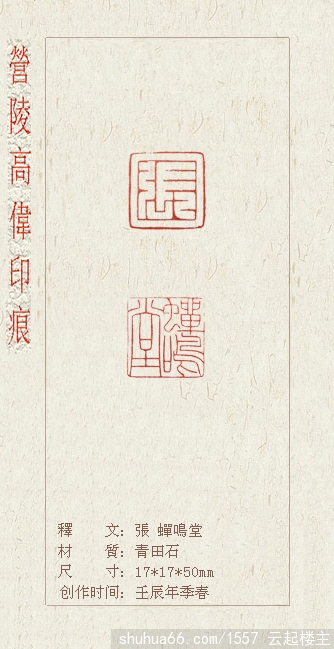 營陵高偉印痕
張
蟬鳴堂
釋 文：張 蟬鳴堂
材 質：青田石
尺 寸：17*17*50mm
创作时间：壬辰年季春
shuhua66.com/1557 云起楼主